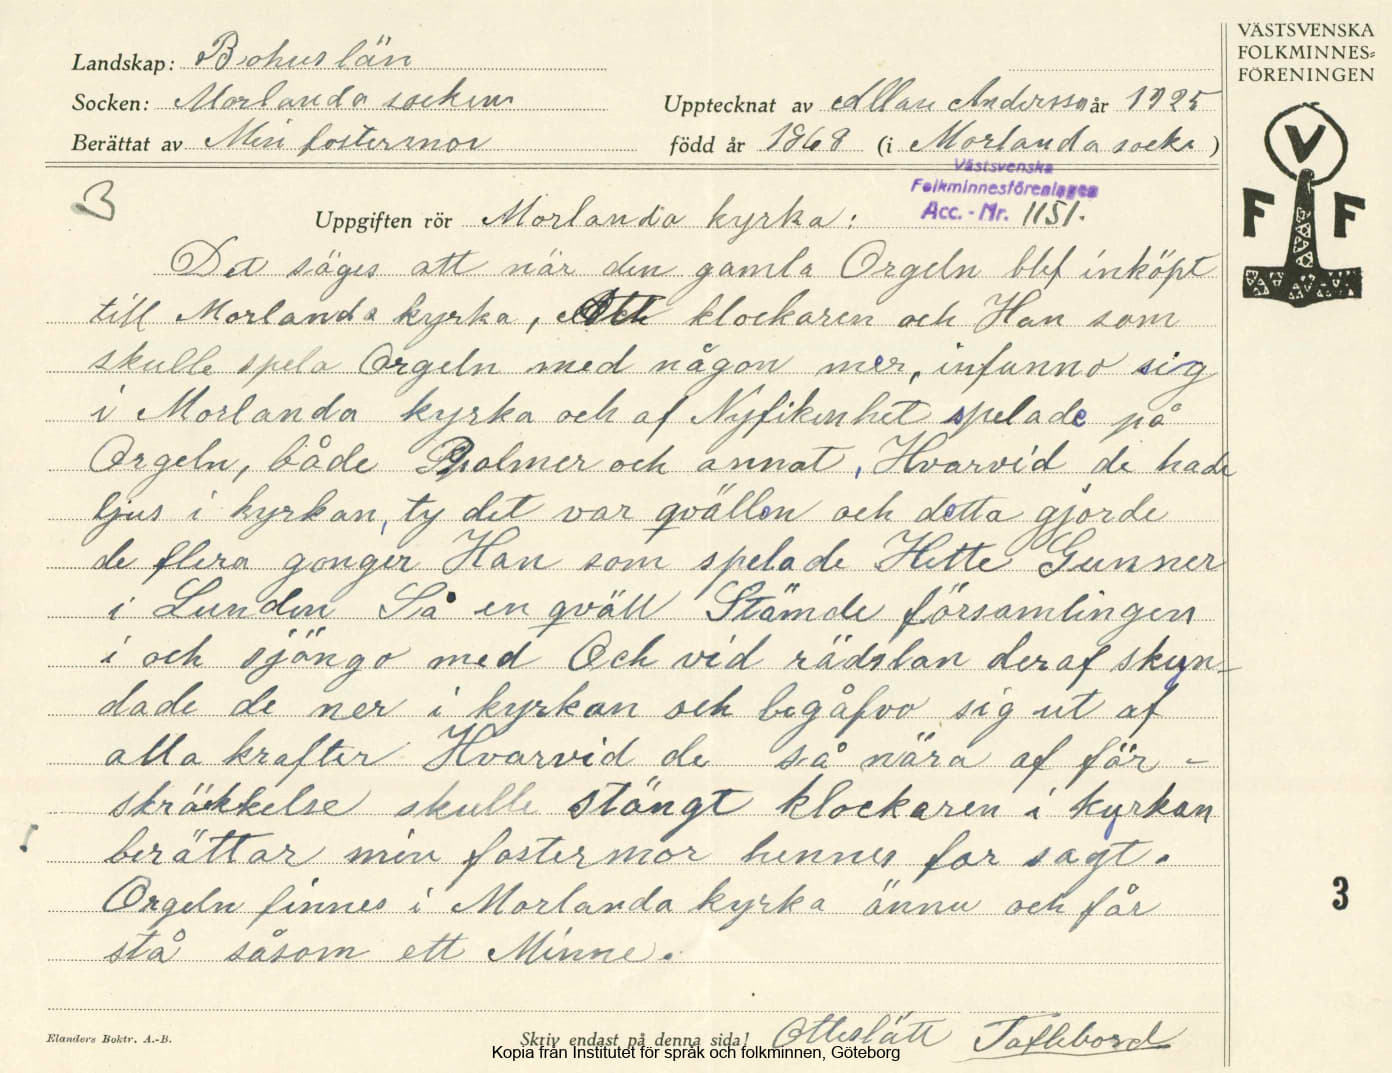 Landskap: Bohuslän
Socken: Morlanda socken
Berättat av Min fostermor
Upptecknat av Allan Andersson år 1925
född år 1868 (i Morlanda socke )
VÄSTSVENSKA
FOLKMINNES-
FÖRENINGEN
V
F F
Västsvenska
Folkminnesföreningen
Acc.-Nr. 1151.
3
Uppgiften rör Morlanda kyrka:
Det säges att när den gamla Orgeln blef inköpt
till Morlanda kyrka, klockaren och Han som
skulle spela Orgeln med någon mer, infunno sig
i Morlanda kyrka och af Nyfikenhet spelade på
Orgeln, både Psalmer och annat, Hvarvid de hade
ljus i kyrkan, ty det var qvällen och detta gjorde
de flera gonger Han som spelade Hette Gunner
i Lunden Så en qväll Stämde församlingen
i och sjöngo med Och vid rädslan deraf skyn-
dade de ner i kyrkan och begåfvo sig ut af
alla krafter Hvarvid de så nära af för-
skräkkelse skulle stängt klockaren i kyrkan
berättar min fostermor hennes far sagt.
Orgeln finnes i Morlanda kyrka ännu och får
stå såsom ett Minne.
3
Elanders Boktr. A.-B.
Skriv endast på denna sida!
Otteslätt Taflebord
Kopia från Institutet för språk och folkminnen, Göteborg